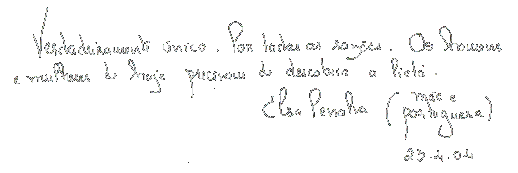 Verdadeiramente único. Por todas as razões. Os Homens
e mulheres de hoje precisam de descobrir a Pietá.
Elsa Penalva (mãe e
portuguesa)
23.4.04